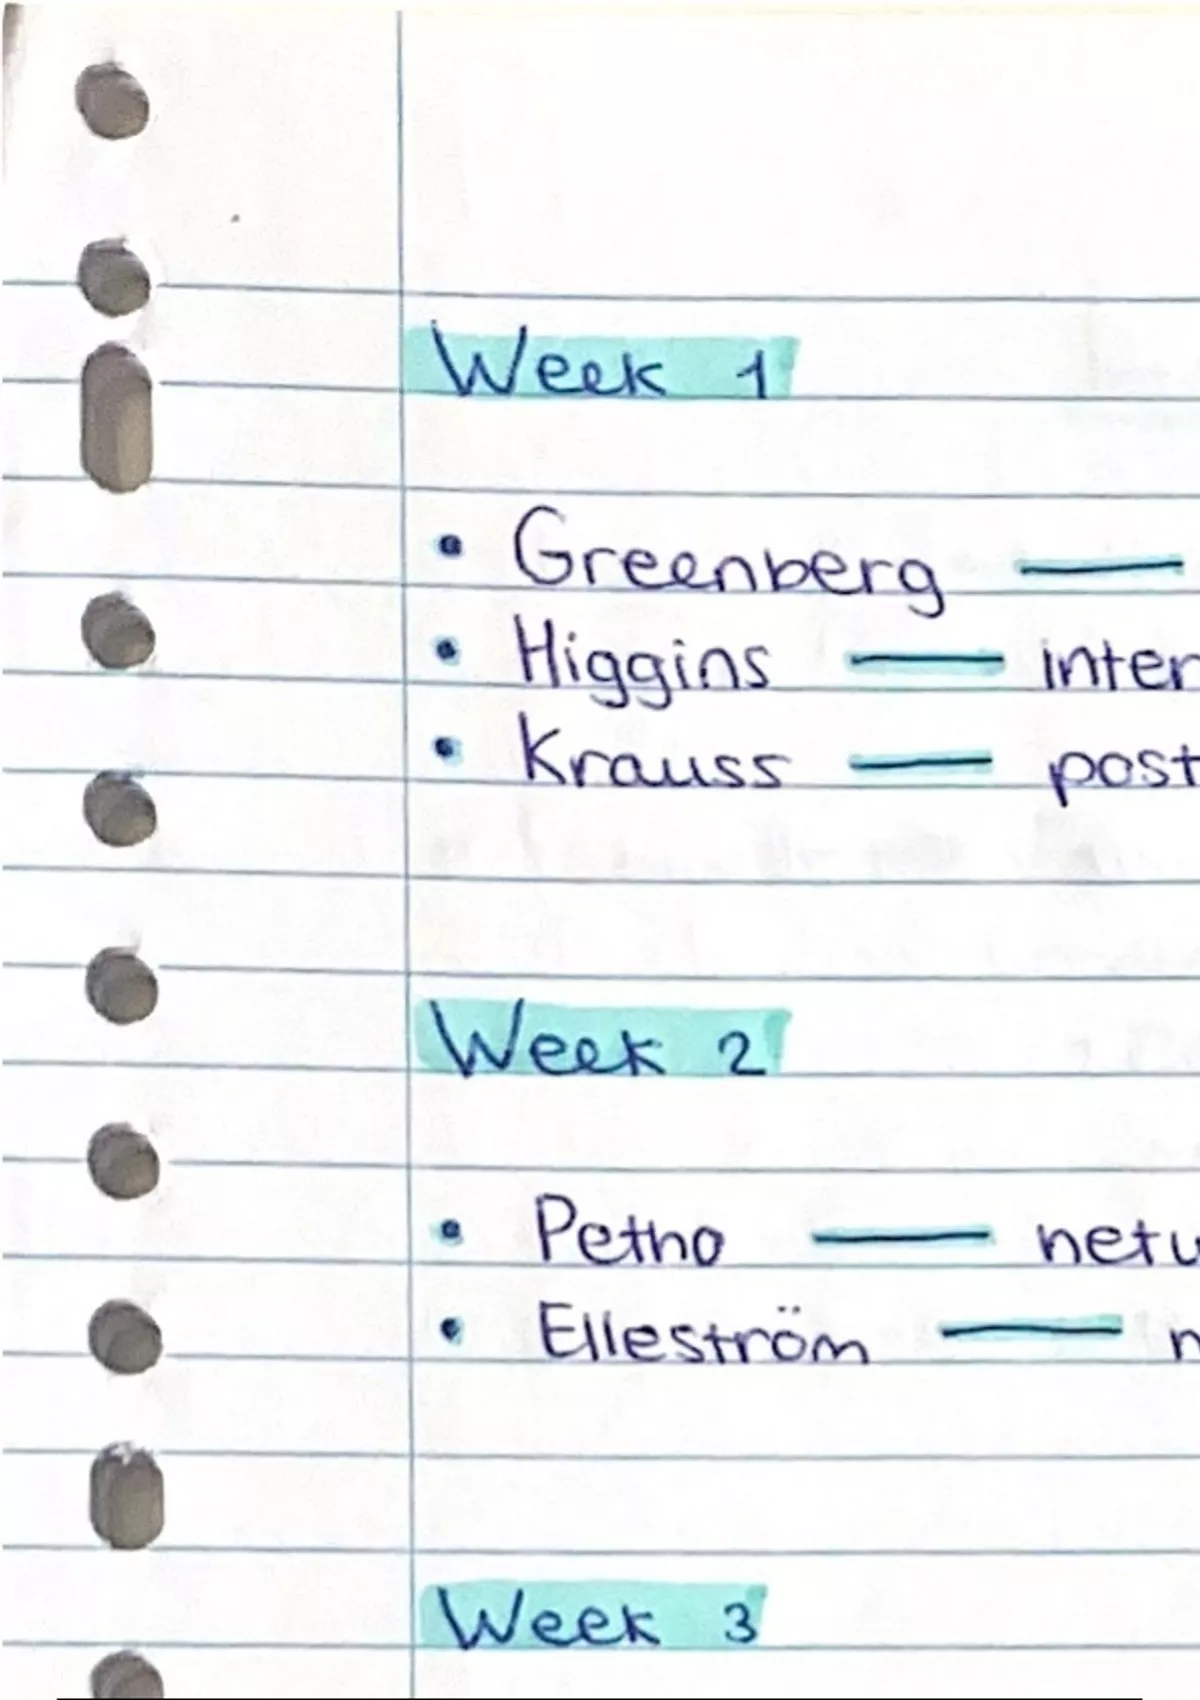 Week 1
• Greenberg —
• Higgins — inter
• Krauss — post
Week 2
• Petho — netw
• Elleström —
Week 3